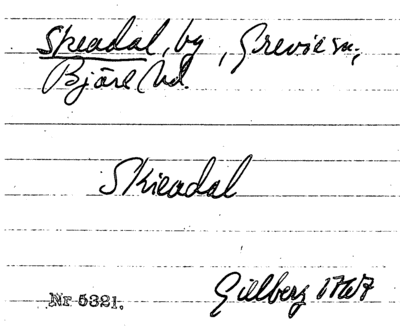 Skeadal, by, Grevie sn,
Bjäre hd.
Skieadal
Nr 5321.
Gillberg 1767